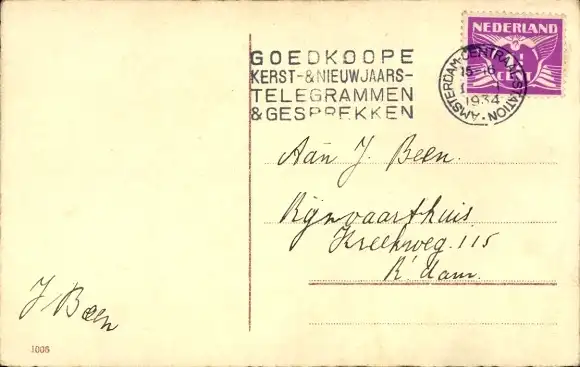 GOEDKOOPE
KERST- & NIEUWJAARS-
TELEGRAMMEN
& GESPREKKEN
NEDERLAND
CENT
AMSTERDAM-CENTRAAL STATION
1934
Aan J. Been.
Rijnvaarthuis
Kreekweg. 115
R'dam.
J Been
1006